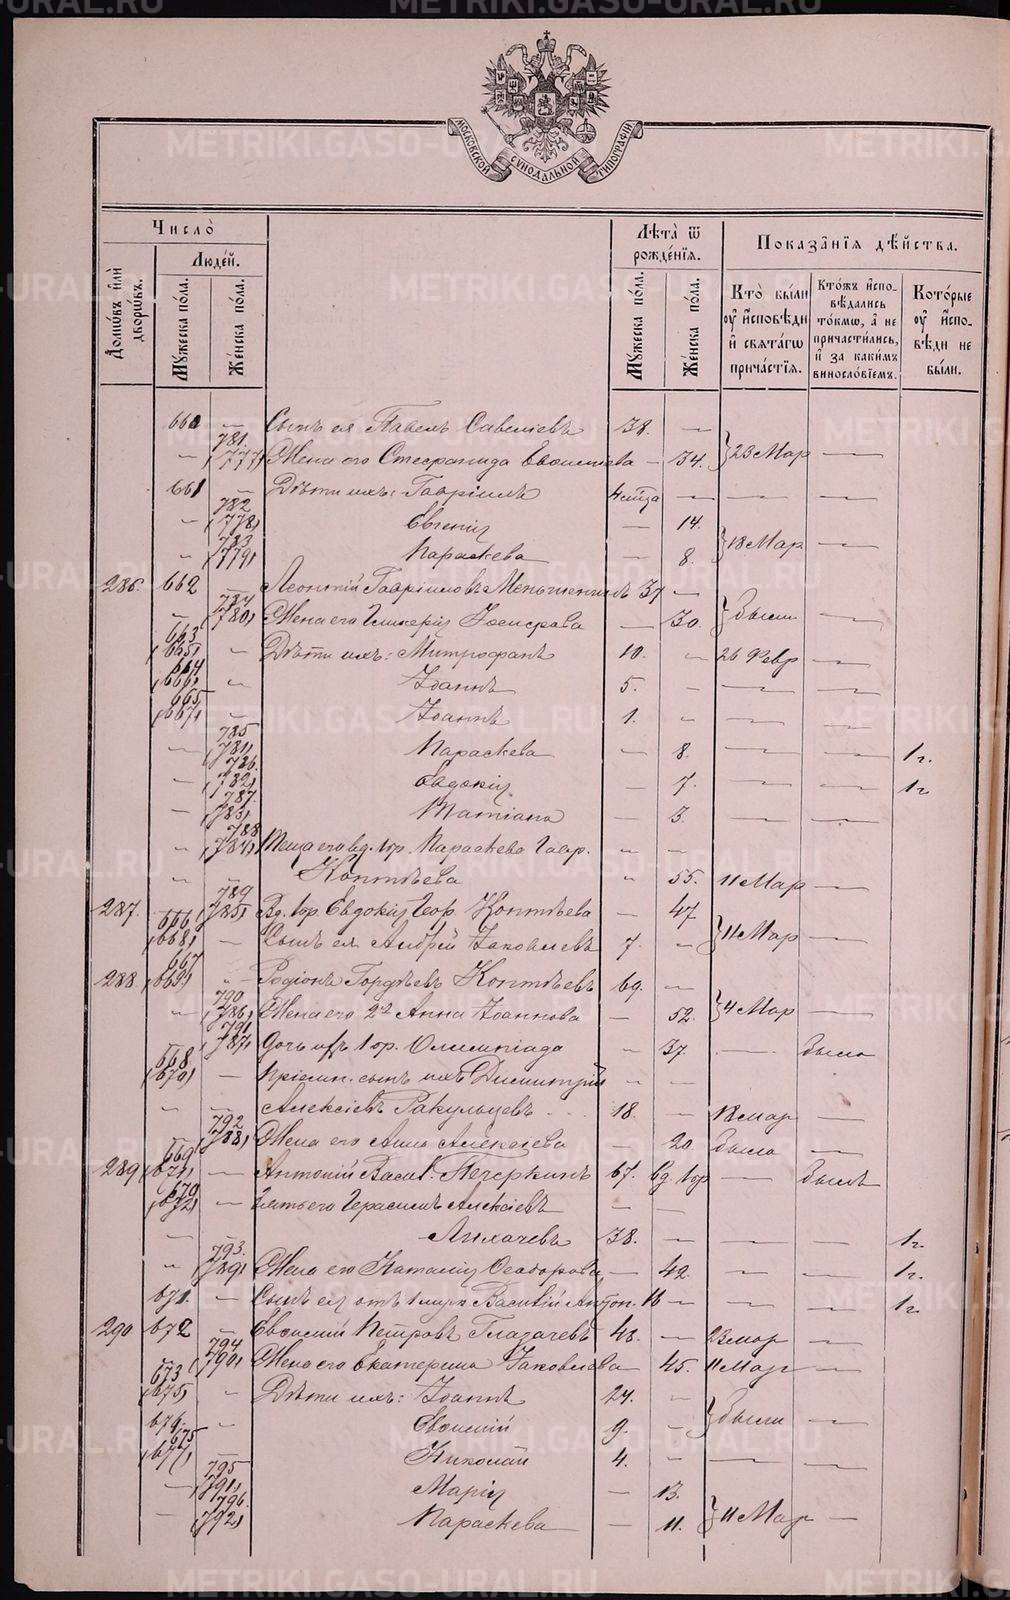 METRIKI.GASO-URAL.RU
МОСКОВСКОЙ СѴНОДАЛЬНОЙ ТИПОГРАФІИ
Число̀
Людей.
Домѡвъ илѝ дворѡвъ.
Мꙋжеска пола.
Женска пола.
Лѣта ѿ рожденїѧ.
Мꙋжеска пола.
Женска пола.
Показанїѧ дѣйства.
Кто̀ были оу҆ и҆сповѣди и҆ свѧтагѡ причастїѧ.
Ктожъ и҆сповѣдались токмѡ, а҆ не причастились, и҆ за какимъ винословїемъ.
Которые оу҆ и҆споvѣди не были.
660 — Сынъ ея Павелъ Савеліевъ 38. —
— 781. (777) Жена его Стефанида Евѳиміева — 34. } 23 Мар —
661 — Дѣти ихъ: Гавріилъ — — —
" 782 (778) Евгенія — 14.
" 783 (779) Параскева — 8. } 18 Мар —
286. 662 — Леонтій Гавріиловъ Меньшениковъ 37 —
" 784 (780) Жена его Гликерія — 30. } были —
663 (665) — Дѣти ихъ: Митрофанъ 10. " 26 Февр —
664 (666) " Іоаннъ 5. — — —
665 (667) — Іоаннъ 1. " — —
— 785 (781) Параскева — 8. — — 1 г.
— 786. (782) Евдокія — 7. — — 1 г
— 787. (783) Татіана — 3. — —
" 788 (784) Теща его вд. 1 бр. Параскева Гавр.
Коптѣева " 55. 11 Мар —
287. 789 (785) Вд. 1 бр. Евдокія Геор. Коптѣева — 47
666 (668) — Сынъ ея Андрей Іаковлевъ 7. " } 11 Мар —
288. 667 (669) " Родіонъ Гордѣевъ Коптѣевъ 69. —
" 790 (786) Жена его 2я Анна Іоаннова — 52. } 4 Мар —
791 (787) Дочь 1 бр. Олимпіада " 37. — была
668 (670) — Пріемн. сынъ ихъ Димитрій " "
" " Алексіевъ Ракульцевъ 18. — 18 мар —
792 (788) Жена его Анна Алексіева — 20. была —
289 669 (671) — Антоній Васил. Печеркинъ 67. вд. 1 бр — былъ
670 (672) — Зять его Герасимъ Алексіевъ — —
— — Лихачевъ 38. — — — 1 г
" 793. (789) Жена его Наталія Ѳеодорова — 42. — — 1 г.
671. — Сынъ ея отъ 1 мужа Василій Антон. 16 — — — 1 г
290 672 — Евѳимій Петровъ Глазачевъ 48. — 23 мар —
— 794 (790) Жена его Екатерина Іаковлева " 45. 11 Мар —
673 (675) " Дѣти ихъ: Іоаннъ 24. —
" Евѳимій 9. — } были —
675 (677) Николай 4. — — —
— 795 (791) Марія — 13.
— 796. (792) Параскева — 11. } 11 Мар —